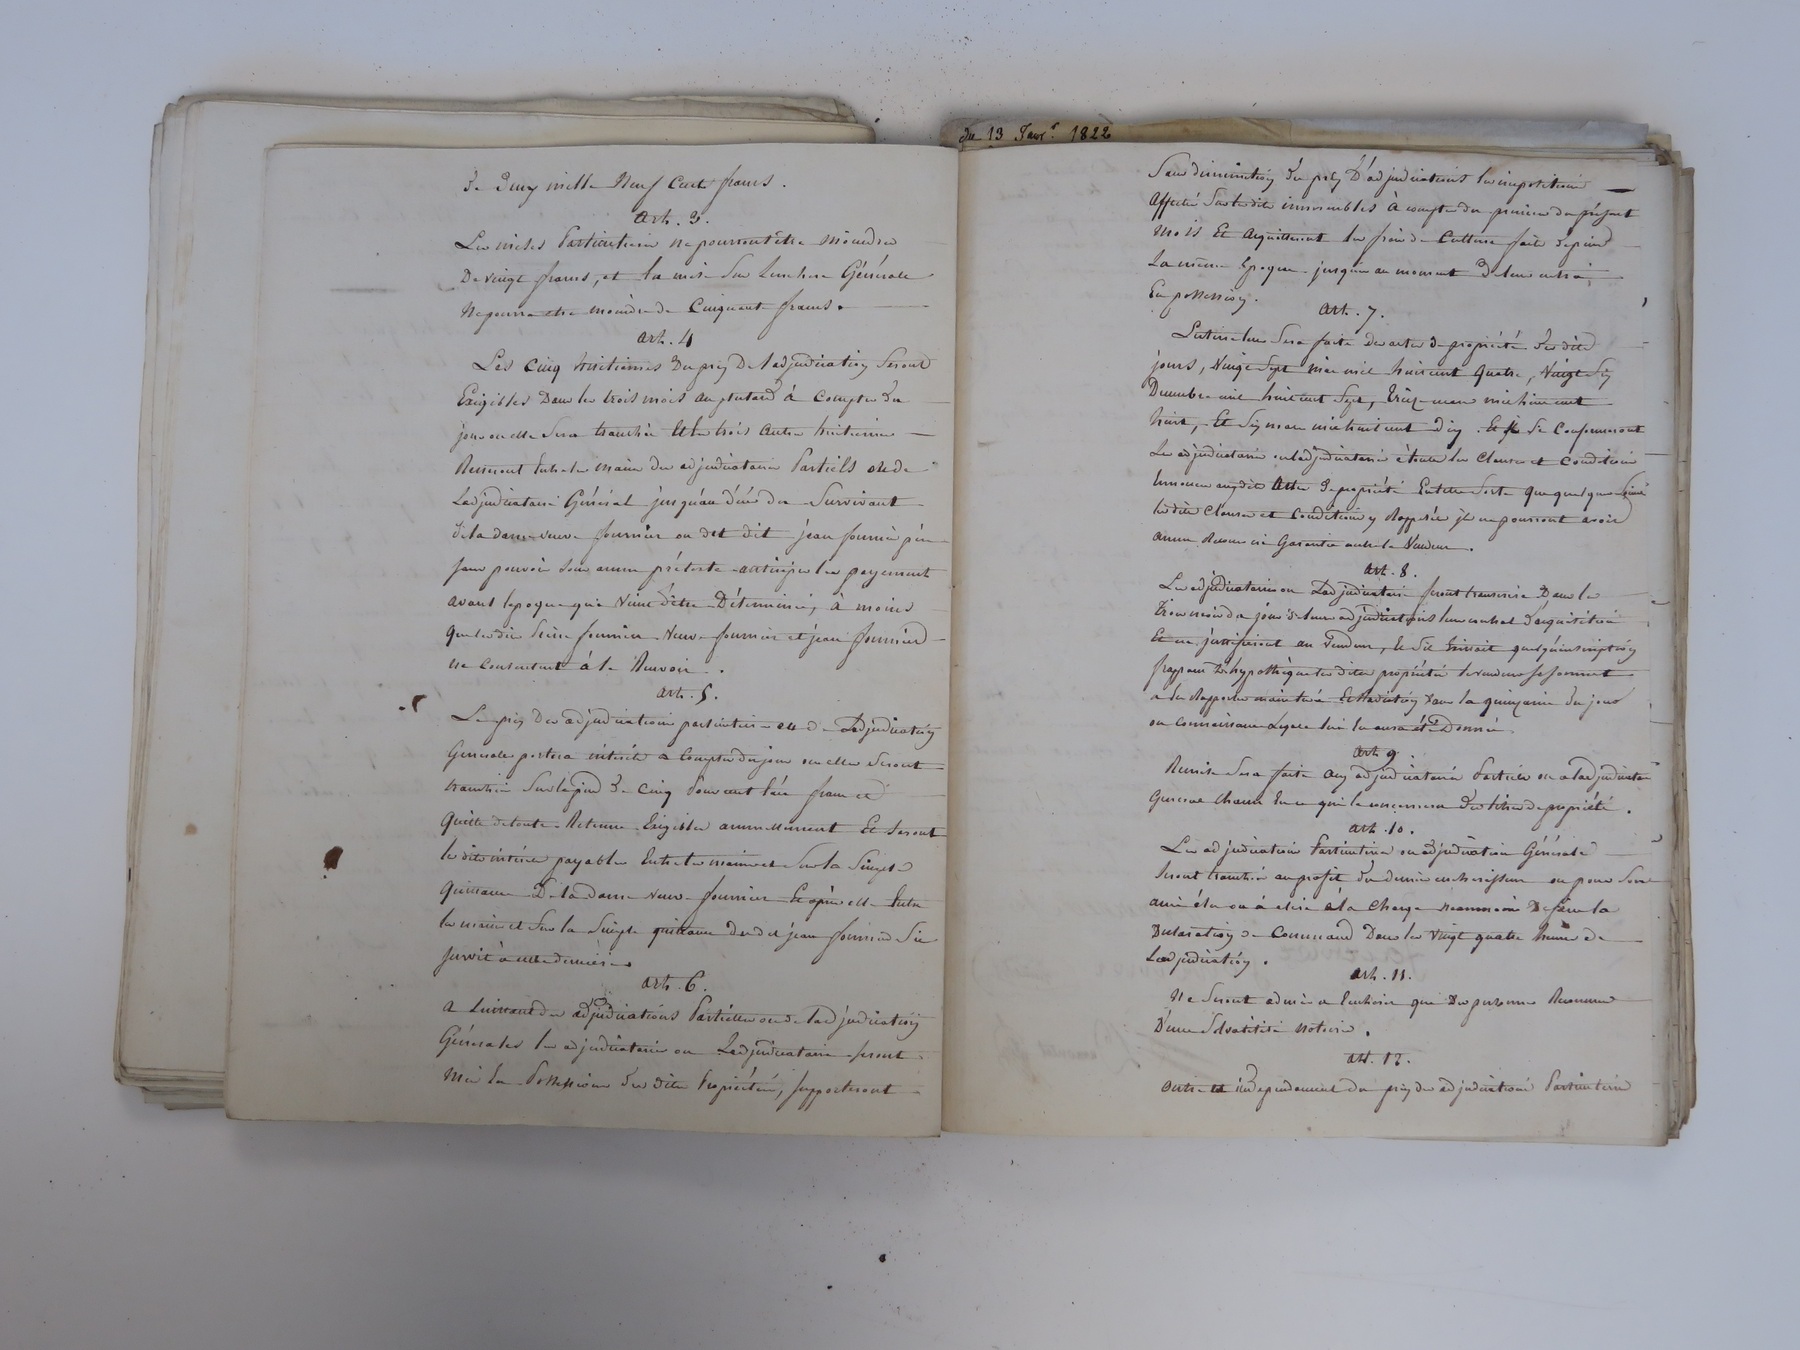 de deux mille Neuf Cent francs.
Art. 3.
Les mises Particulieres ne pourront être moindres
De vingt francs, et la mise Sur Lenchere Générale
Ne pourra etre moindre de Cinquante francs.
Art. 4
Les cinq huitiemes Du prix De l'adjudication Seront
Exigibles Dans les trois mois au plutard à Compter du
jour ou elle Sera tranchée Et les trois autres huitiemes
Resteront Entre les mains des adjudicataires Partiels ou de
Ladjudicataire Général jusqu'au décès du Survivant
de la dame veuve fournier ou du dit jean fournier père
sans pouvoir sous aucun prétexte anticiper les payements
avant l'epoque qui vient d'être Déterminée, à moins
que les dits Veuve fournier et jean fournier
ne consentent à le Recevoir.
Art. 5.
Le prix Des adjudications particulieres ou de Ladjudication
Generale portera intérêt a Compter du jour ou elles Seront
tranchées Sur le pied de cinq Pour cent l'an franc et
Quitte de toute Retenue Exigibles annuellement Et Seront
les dits intérets payables Entre les mains et Sur la Simple
Quittance De la Dame veuve fournier Et après elle Entre
les mains et Sur la Simple quittance du dit jean fournier S'il
survit à cette derniere.
Art. 6.
a L'instant des adjudications Partielles ou de l'adjudication
Générales les adjudicataires ou Ladjudicataire seront
Mis En Possession des dites Propriétés, supporteront
du 13 Janv.r 1822
Sans diminution du prix D'adjudications les impositions
Affectées Sur les dits immeubles à compter du premier du présent
Mois Et Acquitteront les frais de Culture faits depuis
La même Epoque jusqu'au moment de leur entrée
En possession.
Art. 7.
Lecture leur Sera faite des actes de propriété des dits
jours, Vingt Sept mai mil huit cent Quatre, Vingt Six
Decembre mil huit cent Sept, Treize mars mil huit cent
huit, Et Six mars mil huit cent dix. Et Se Conformeront
Les adjudicataires ou Ladjudicataire à toutes les Clauses et Conditions
Enoncées auxdits Actes de propriété En telle Sorte que quelques Soient
les dites Clauses et Conditions y Rapportées il ne pourront avoir
aucun Recours ni Garantie contre le Vendeur.
Art. 8.
Les adjudicataires ou Ladjudicataire feront transcrire Dans les
Trois mois du jour de leurs adjudications leur contrat d'acquisition
Et en justifieront au Vendeur, Et S'il Existait quelqu'inscription
frappant D'hypothèque les dites propriétés le vendeur
a en Rapporter mainlevée Et Radiation Dans la quinzaine du jour
ou Connaissance Legale lui En aura été Donnée
Art. 9.
Remise Sera faite aux adjudicataires Partiels ou a Ladjudicataire
General Chacun En ce qui le concernera Des titres de propriété.
Art. 10.
Les adjudications Particulieres ou adjudication Générale
Seront tranchées au profit du dernier enchérisseur ou pour Son
ami élu ou à elire à la Charge néanmoins De faire la
Declaration de Command Dans les Vingt quatre heures de
Ladjudication.
Art. 11.
Ne Seront admises a Enchérir que Des personnes Reconnues
D'une Solvabilité notoire.
Art. 12.
Outre et independament du prix des adjudications Particulieres